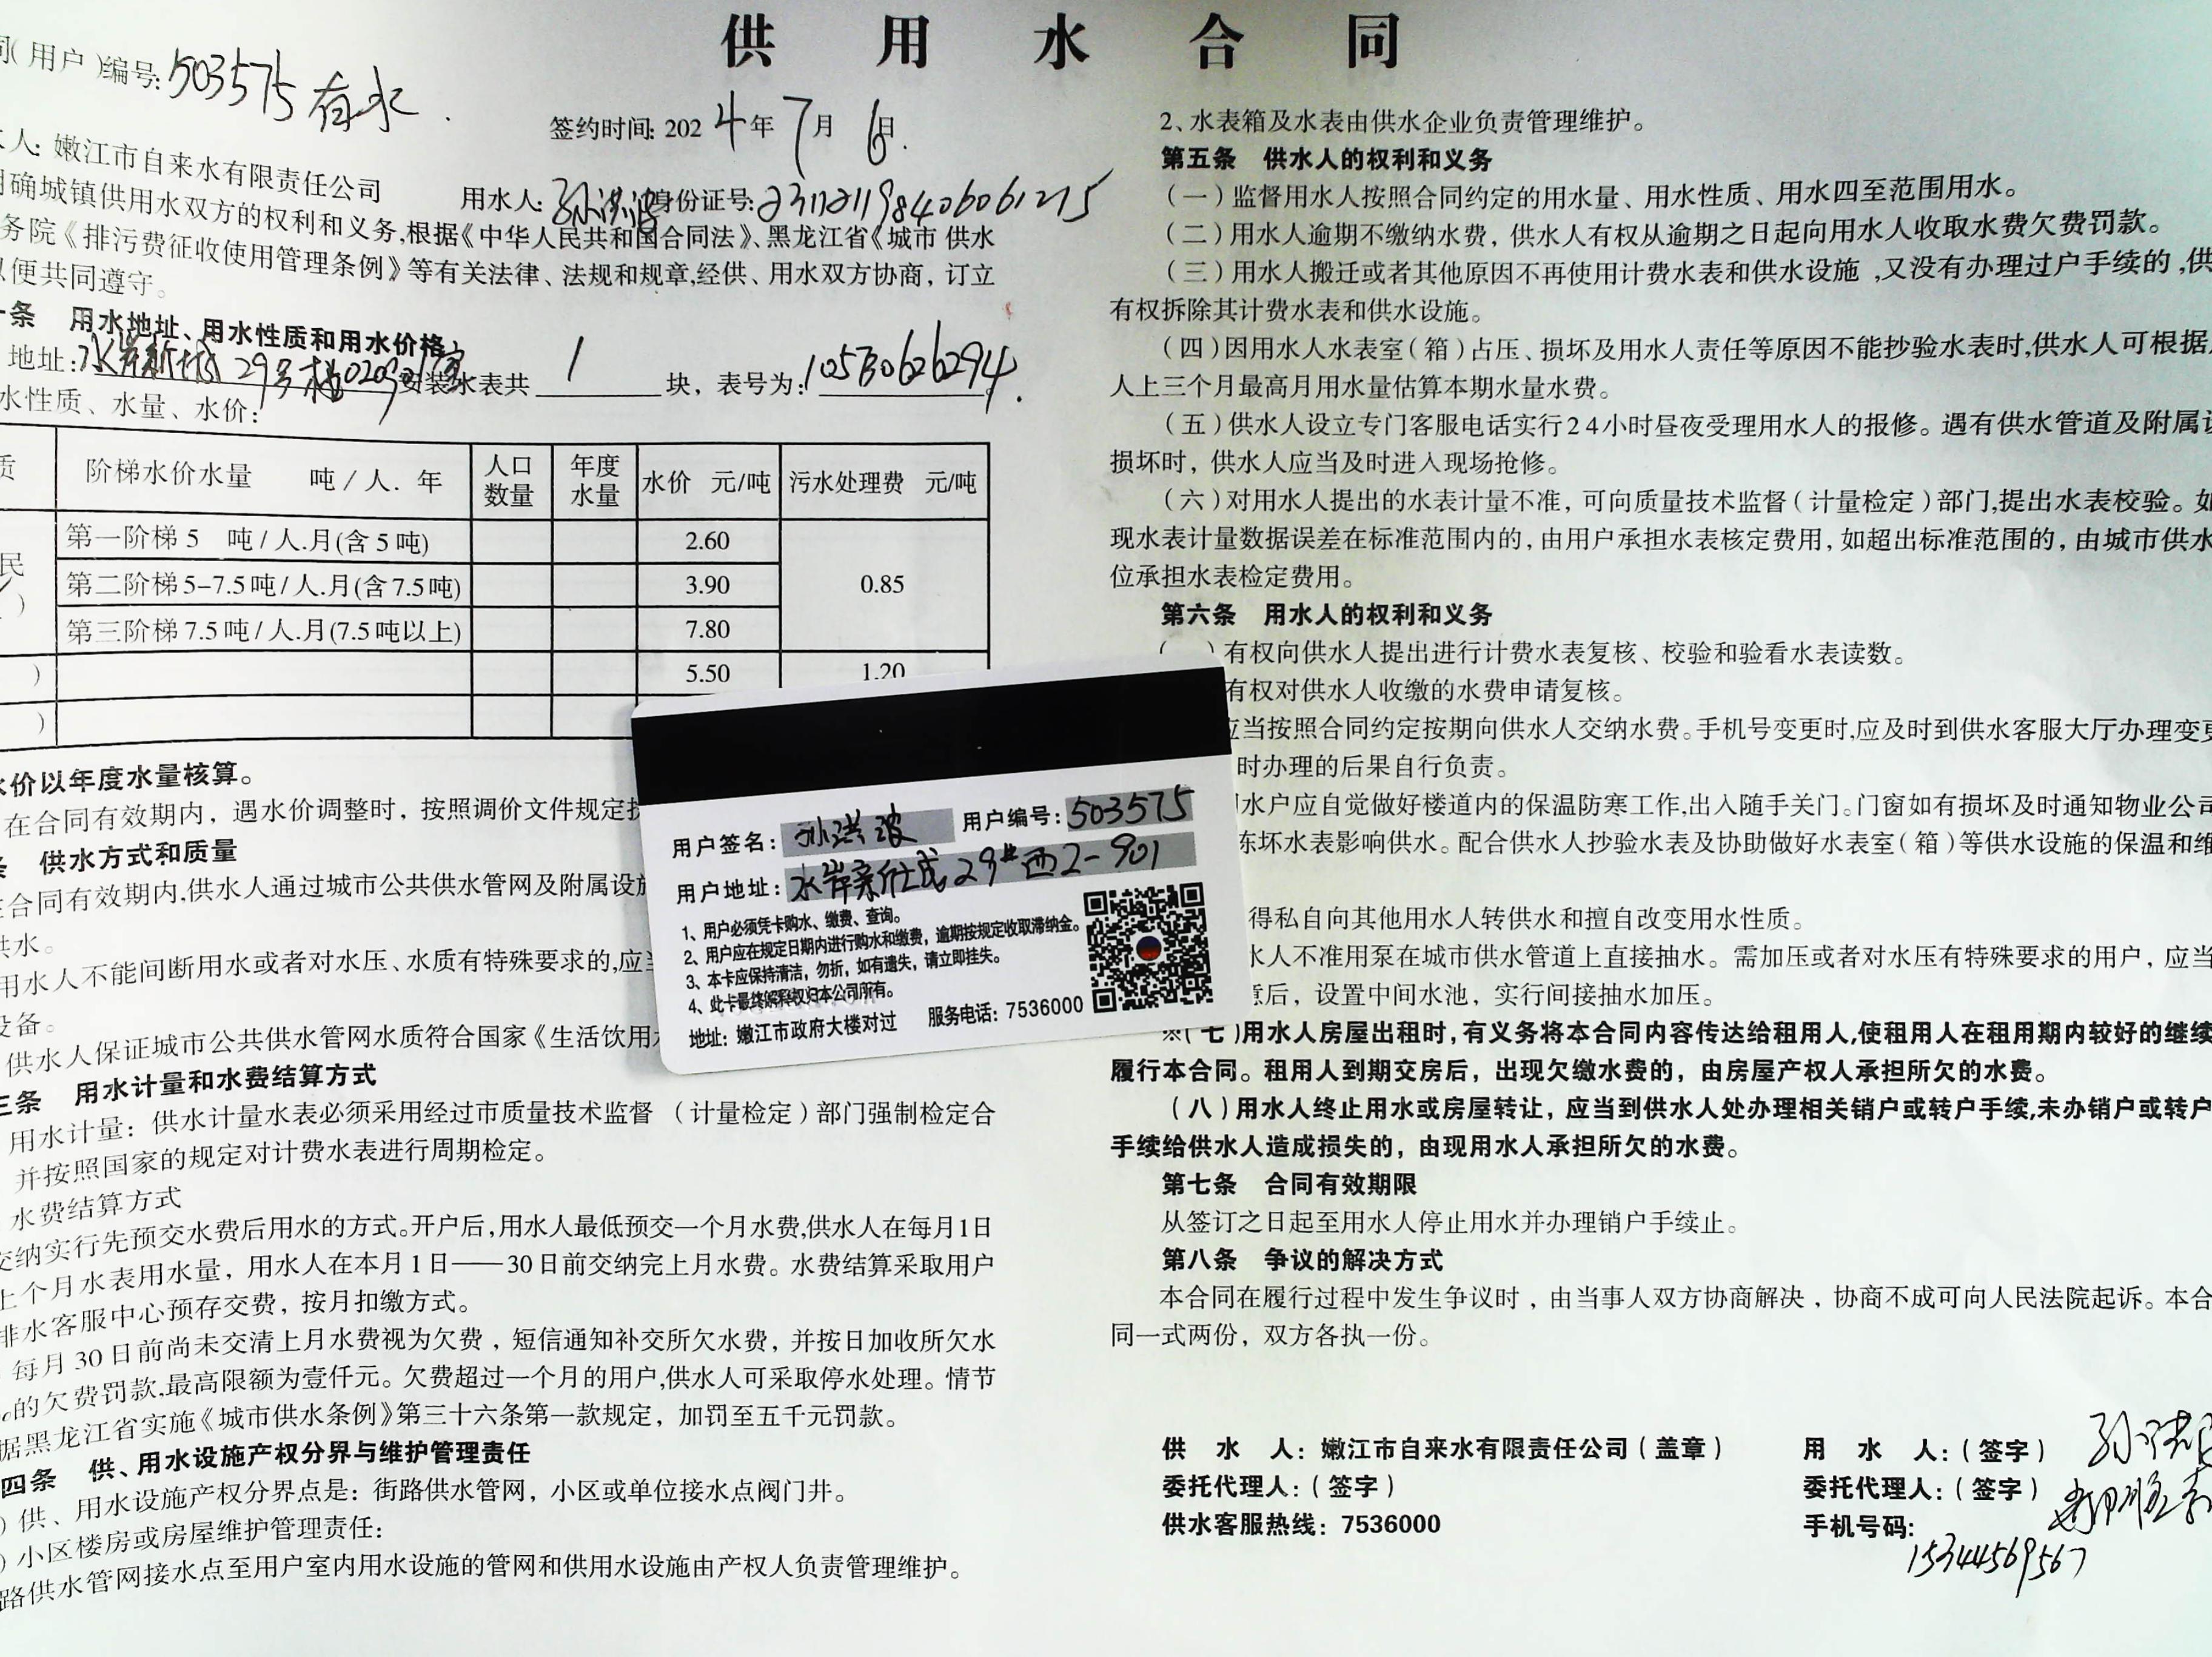 供用水合同
(用户)编号:503575 有水
签约时间: 2024年7月6日
人: 嫩江市自来水有限责任公司
用水人: 孙洪波 身份证号:
确城镇供用水双方的权利和义务,根据《中华人民共和国合同法》、黑龙江省《城市 供水
务院《排污费征收使用管理条例》等有关法律、法规和规章,经供、用水双方协商，订立
便共同遵守。
条 用水地址、用水性质和用水价格
地址: 29号楼 安装水表共 1 块，表号为:
水性质、水量、水价:
质 阶梯水价水量 吨/人.年 人口数量 年度水量 水价 元/吨 污水处理费 元/吨
民 第一阶梯 5 吨/人.月(含5吨) 2.60 0.85
第二阶梯 5-7.5吨/人.月(含7.5吨) 3.90
) 第三阶梯 7.5吨/人.月(7.5吨以上) 7.80
) 5.50 1.20
)
水价以年度水量核算。
在合同有效期内，遇水价调整时，按照调价文件规定
条 供水方式和质量
合同有效期内,供水人通过城市公共供水管网及附属设施
供水。
用水人不能间断用水或者对水压、水质有特殊要求的,应
设备。
供水人保证城市公共供水管网水质符合国家《生活饮用
三条 用水计量和水费结算方式
用水计量：供水计量水表必须采用经过市质量技术监督（计量检定）部门强制检定合
并按照国家的规定对计费水表进行周期检定。
水费结算方式
交纳实行先预交水费后用水的方式。开户后,用水人最低预交一个月水费,供水人在每月1日
上个月水表用水量，用水人在本月1日——30日前交纳完上月水费。水费结算采取用户
排水客服中心预存交费，按月扣缴方式。
每月30日前尚未交清上月水费视为欠费，短信通知补交所欠水费，并按日加收所欠水
的欠费罚款,最高限额为壹仟元。欠费超过一个月的用户,供水人可采取停水处理。情节
据黑龙江省实施《城市供水条例》第三十六条第一款规定，加罚至五千元罚款。
四条 供、用水设施产权分界与维护管理责任
)供、用水设施产权分界点是：街路供水管网，小区或单位接水点阀门井。
)小区楼房或房屋维护管理责任：
路供水管网接水点至用户室内用水设施的管网和供用水设施由产权人负责管理维护。
2、水表箱及水表由供水企业负责管理维护。
第五条 供水人的权利和义务
（一）监督用水人按照合同约定的用水量、用水性质、用水四至范围用水。
（二）用水人逾期不缴纳水费，供水人有权从逾期之日起向用水人收取水费欠费罚款。
（三）用水人搬迁或者其他原因不再使用计费水表和供水设施，又没有办理过户手续的,供
有权拆除其计费水表和供水设施。
（四）因用水人水表室（箱）占压、损坏及用水人责任等原因不能抄验水表时,供水人可根据
人上三个月最高月用水量估算本期水量水费。
（五）供水人设立专门客服电话实行24小时昼夜受理用水人的报修。遇有供水管道及附属设
损坏时，供水人应当及时进入现场抢修。
（六）对用水人提出的水表计量不准，可向质量技术监督（计量检定）部门,提出水表校验。如
现水表计量数据误差在标准范围内的，由用户承担水表核定费用，如超出标准范围的，由城市供水
位承担水表检定费用。
第六条 用水人的权利和义务
有权向供水人提出进行计费水表复核、校验和验看水表读数。
有权对供水人收缴的水费申请复核。
应当按照合同约定按期向供水人交纳水费。手机号变更时,应及时到供水客服大厅办理变更
时办理的后果自行负责。
水户应自觉做好楼道内的保温防寒工作,出入随手关门。门窗如有损坏及时通知物业公司
冻坏水表影响供水。配合供水人抄验水表及协助做好水表室（箱）等供水设施的保温和维
得私自向其他用水人转供水和擅自改变用水性质。
水人不准用泵在城市供水管道上直接抽水。需加压或者对水压有特殊要求的用户，应当
意后，设置中间水池，实行间接抽水加压。
※（七）用水人房屋出租时，有义务将本合同内容传达给租用人,使租用人在租用期内较好的继续
履行本合同。租用人到期交房后，出现欠缴水费的，由房屋产权人承担所欠的水费。
（八）用水人终止用水或房屋转让，应当到供水人处办理相关销户或转户手续,未办销户或转户
手续给供水人造成损失的，由现用水人承担所欠的水费。
第七条 合同有效期限
从签订之日起至用水人停止用水并办理销户手续止。
第八条 争议的解决方式
本合同在履行过程中发生争议时，由当事人双方协商解决，协商不成可向人民法院起诉。本合
同一式两份，双方各执一份。
供 水 人：嫩江市自来水有限责任公司（盖章）
委托代理人：（签字）
供水客服热线：7536000
用 水 人：（签字）孙洪波
委托代理人：（签字）
手机号码: 15344569567
用户签名：孙洪波 用户编号：503575
用户地址： 29# 西2-901
1、用户必须凭卡购水、缴费、查询。
2、用户应在规定日期内进行购水和缴费，逾期按规定收取滞纳金。
3、本卡应保持清洁，勿折，如有遗失，请立即挂失。
4、此卡最终解释权归本公司所有。
地址：嫩江市政府大楼对过 服务电话：7536000